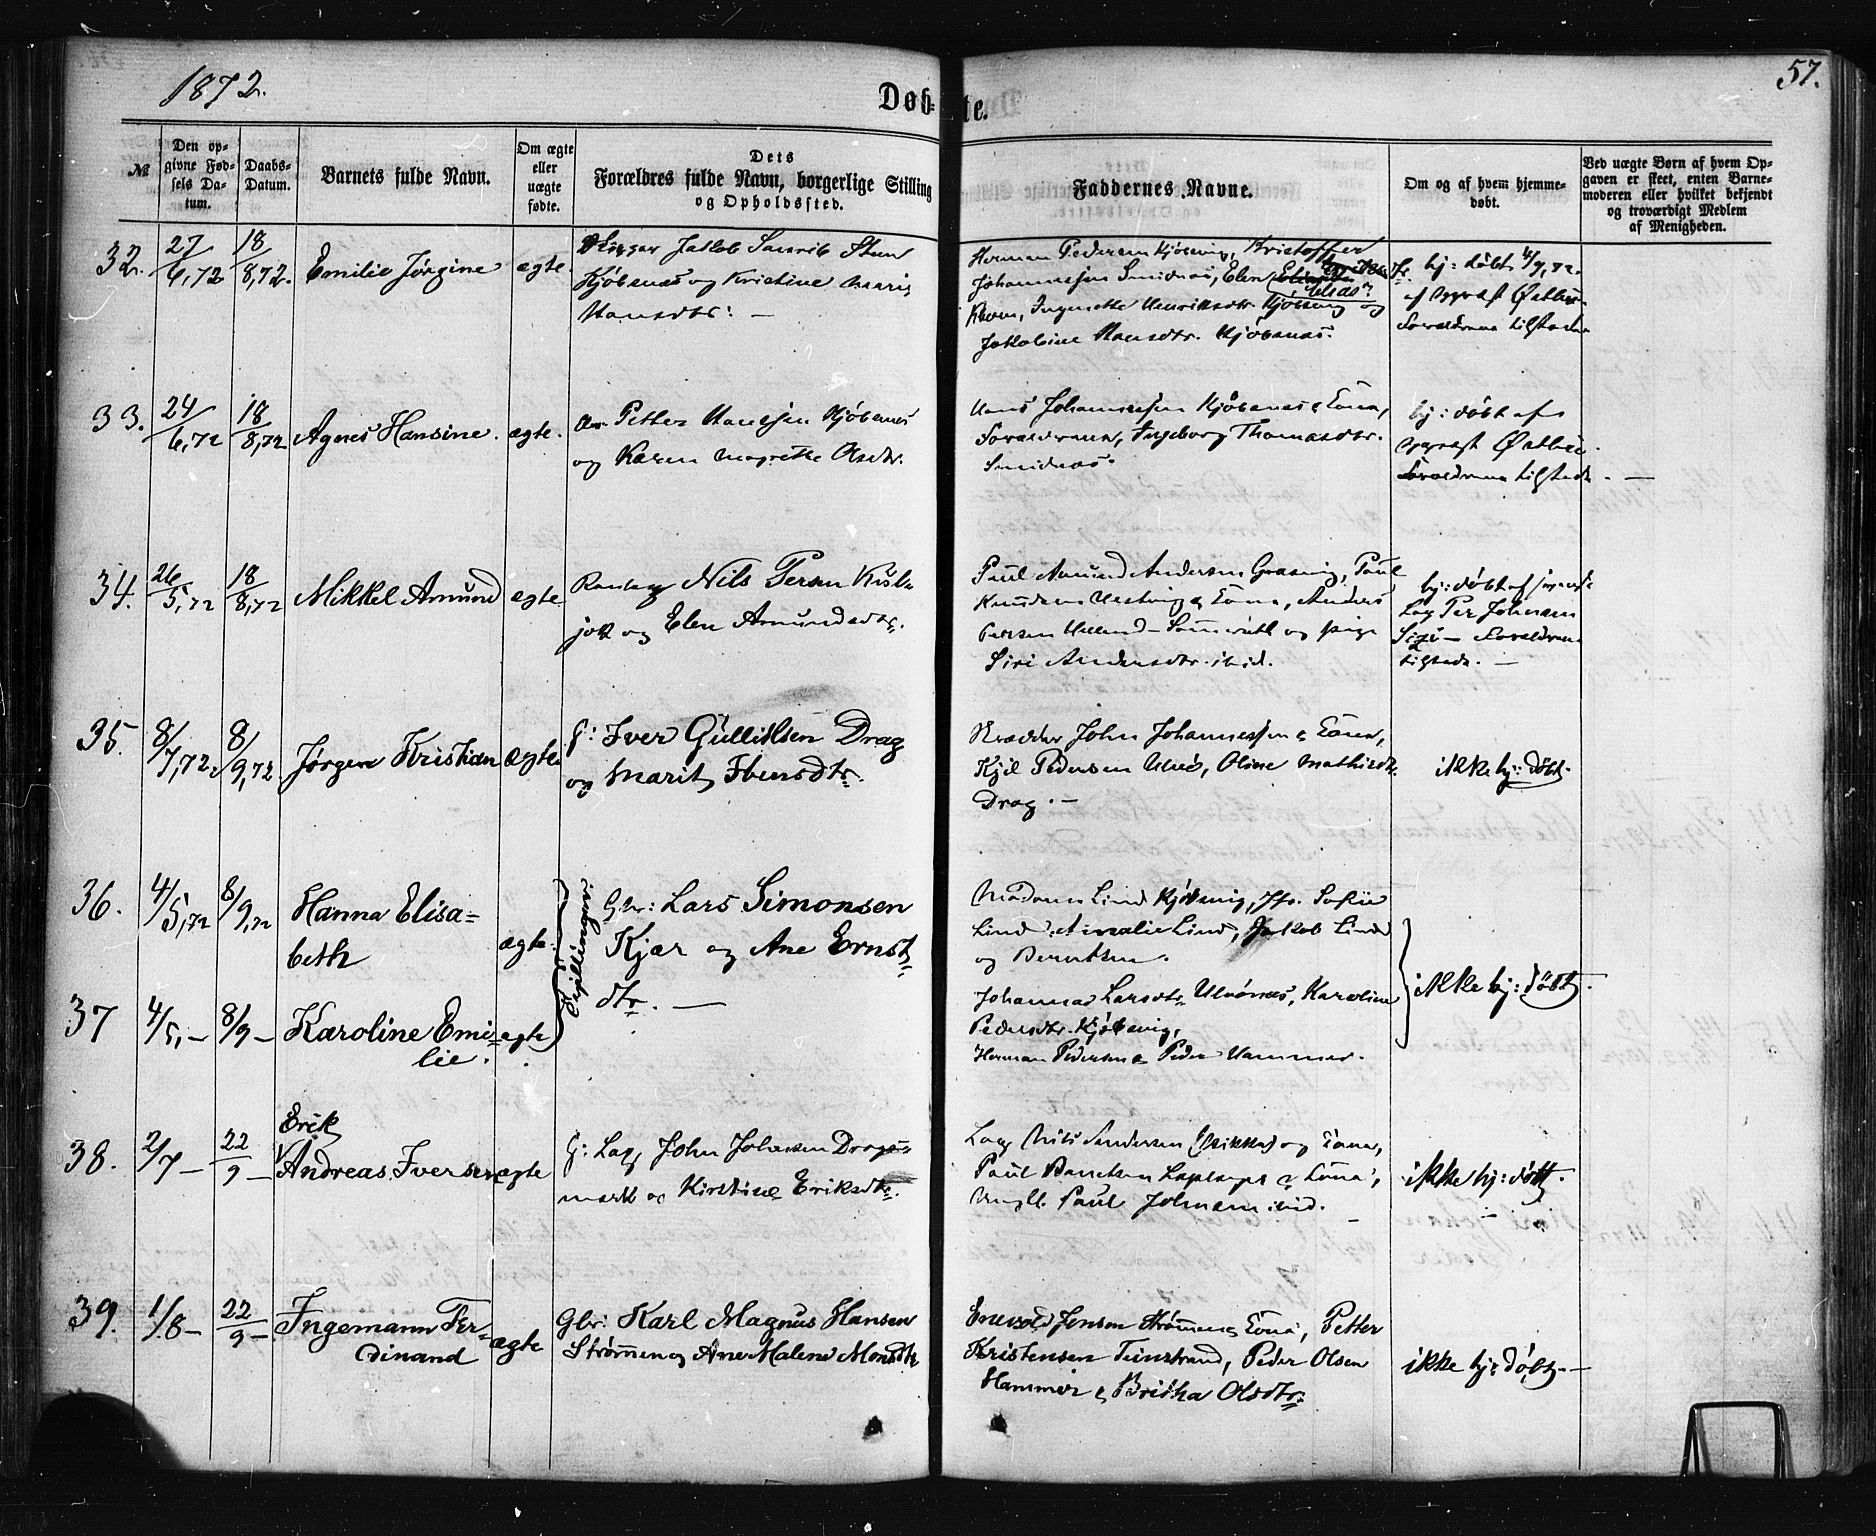 1872.
57.
Døb-te.
№
Den op-
givne Fød-
sels Da-
tum.
Daabs-
Datum.
Barnets fulde Navn.
Om ægte
eller
uægte
fødte.
Dets
Forældres fulde Navn, borgerlige Stilling
og Opholdssted.
Faddernes Navne.
Om og af hvem hjemme-
døbt.
Ved uægte Børn af hvem Op-
gaven er skeet, enten Barne-
moderen eller hvilket bekjendt
og troværdigt Medlem
af Menigheden.
32. 27/6,72 18/8,72. Emilie Jørgine ægte.
Jakob
Kjøbsnæs og Kristine Marie
Hansdtr: —
Herman Pedersen Kjøbsvig, Kristoffer
Johannessen Smidnæs, Elen
Ingerette Henriksdtr. Kjøbsvig og
Jakobine Hansdtr. Kjøbsnæs.
hj: døbt 4/7,72.
af
Forældrene tilstede
33. 24/6,72 18/8,72 Agnes Hansine. ægte.
Petter Hansen Kjøbsnæs
og Karen Magrethe Olsdtr.
Hans Johannessen Kjøbsnæs & Kona,
Forældrene, Ingeborg Thomasdtr.
Smidnæs.
hj: døbt af
Forældrene tilstede. —
34. 26/5,72 18/8,72 Mikkel Amund ægte
Nils Persen
og Elen Amundsdtr.
Paul Amund Andersen Grasvig, Paul
Knudsen & Kona, Anders
Persen Helland — og pige
Siri Andersdtr. ibid.
hj: døbt af
Lap Per Johnsen
— Forældrene
tilstede. —
35. 8/7,72. 8/9,72 Jørgen Kristian ægte
G: Iver Gullitsen Drag
og Marit Ibensdtr.
John Johannessen & Kona,
Kjel Pedersen Ulvø, Oline Mathisdtr.
Drag. —
ikke hj: døbt.
36. 4/5,72 8/9,72 Hanna Elisa=
beth
ægte.
Tvillinger:
Gbr: Lars Simonsen
Kjær og Ane Ernst=
dtr. —
Madame Lind Kjøbsvig, Jfr. Sofie
Lind, Amalie Lind, Jakob Lind
og Berntsen.
37 4/5,— 8/9— Karoline Emi=
lie.
ægte.
Johanna Larsdtr. Ulvønæs, Karoline
Pedersdtr. Kjøbsvig,
Herman Pedersen & Peder Hammer.
ikke hj: døbt.
38. 2/7— 22/9— Erik
Andreas Iversen ægte
G: Lap John Johnsen Drags=
mark og Kirstine Eriksdtr.
Lap Nils Andersen (Nikka) og Kona,
Paul & Kona,
Ungk. Paul Johnsen ibid.
ikke hj: døbt.
39. 1/8— 22/9— Ingemann Fer=
dinand
ægte
Gbr: Karl Magnus Hansen
Strømmen og Ane Malene Monsdtr.
Enevold Jensen Strømmen & Kona, Petter
Kristensen Teinstrand, Peder Olsen
Hammer & Britha Olsdtr.
ikke hj: døbt. —